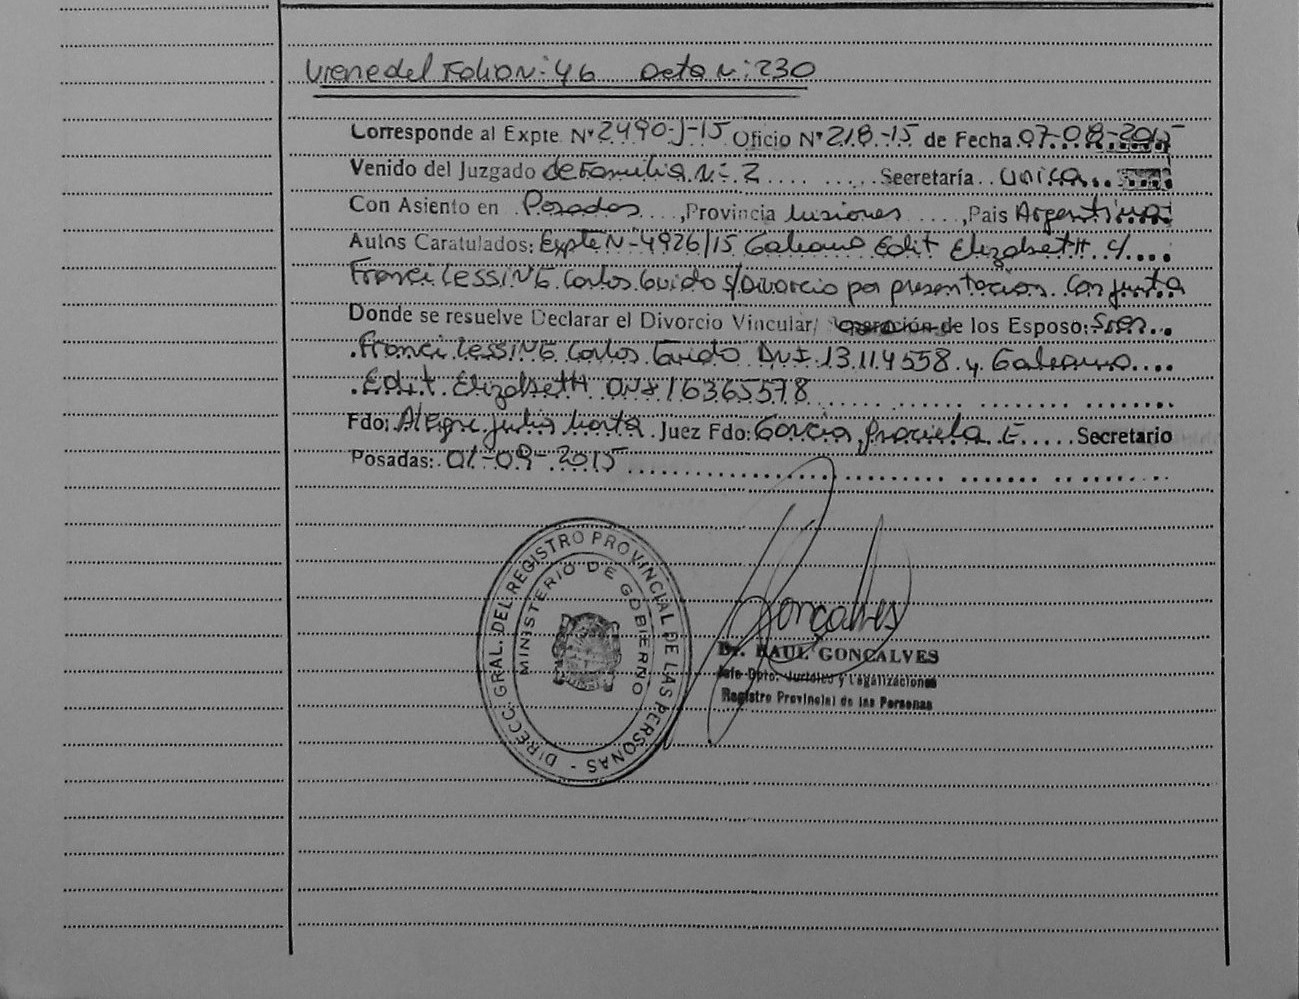 Viene del Folio N: 46 Acta N: 230
Corresponde al Expte. Nº 2490-J-15 Oficio Nº 218-15 de Fecha 07-08-2015
Venido del Juzgado de Familia N: 2 Secretaría unica
Con Asiento en Posadas, Provincia Misiones, Pais Argentina
Autos Caratulados: Expte N-4926/15 Galeano Edit Elizabeth c/
Franci lessiNE Carlos Guido s/Divorcio por presentación Conjunta
Donde se resuelve Declarar el Divorcio Vincular/ de los Esposo: Sres
Franci lessiNE Carlos Guido DNI 13.114558 y Galeano
Edit Elizabeth DNI 16365578
Fdo: Alegre Julia Marta Juez Fdo: Garcia, Graciela E. Secretario
Posadas: 01-09-2015
DIRECC. GRAL. DEL REGISTRO PROVINCIAL DE LAS PERSONAS -
MINISTERIO DE GOBIERNO
Gonçalves
Dr. RAUL GONCALVES
Jefe Dpto. Jurídico y Legalizaciones
Registro Provincial de las Personas